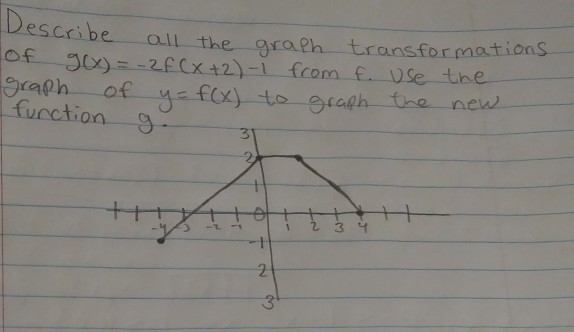 Describe all the graph transformations
of g(x) = -2f(x+2)-1 from f. Use the
graph of y=f(x) to graph the new
function g.
3
2
1
-4 -3 -2 -1 0 1 2 3 4
-1
2
3